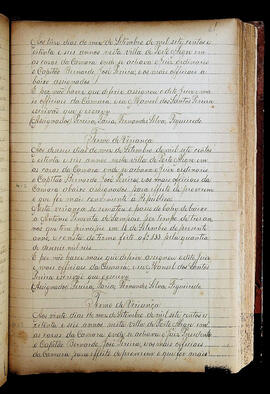 Aos doze dias do mez de Setembro de mil sete centos e
oitenta e seis annos nesta villa de Porto Alegre em
as casas da Camara onde se achava o Juiz ordinario
o Capitão Bernardo José Pereira, e os mais officiaes a
baixo assignados
E por não haver que deferir assignou o dito Juiz e ma
is officiaes da Camara, e eu Manoel dos Santos Pereira
escrivão que o escrevy
Assignados: Pereira, Faria, Fernandes Silva, Figueiredo
Termo de Vriança
Aos dezeseis dias do mez de Setembro de mil sete centos
e oitenta e seis annos nesta villa de Porto Alegre em
as casas da Camara onde se achava o Juiz ordinario
o Capitão Bernardo José Pereira, e os mais officiaes da
Camara abaixo assignados, para effeito de proverem
o que for mais conveniente a Republica
a Antonio Pimenta de Sampaio por tempo de tres an
nos que teve principio em 16 de Setembro do presente
anno, e consta do termo feito a fl. 133 pela quantia
de dezeseis mil reis
E por não haver mais que deferir assignou o dito Juiz
e mais officiaes da Camara, e eu Manoel dos Santos
Pereira escrivão que o escrevy
Assignados: Pereira, Faria, Fernandes Silva, Figueiredo
Termo de Vriança
Aos vinte dias do mez de Setembro de mil sete centos e
oitenta e seis annos nesta villa de Porto Alegre em
as casas da Camara onde se achava o Juiz Presidente
o Capitão Bernardo José Pereira, e os mais officiaes
da Camara para effeito de proverem o que for mais